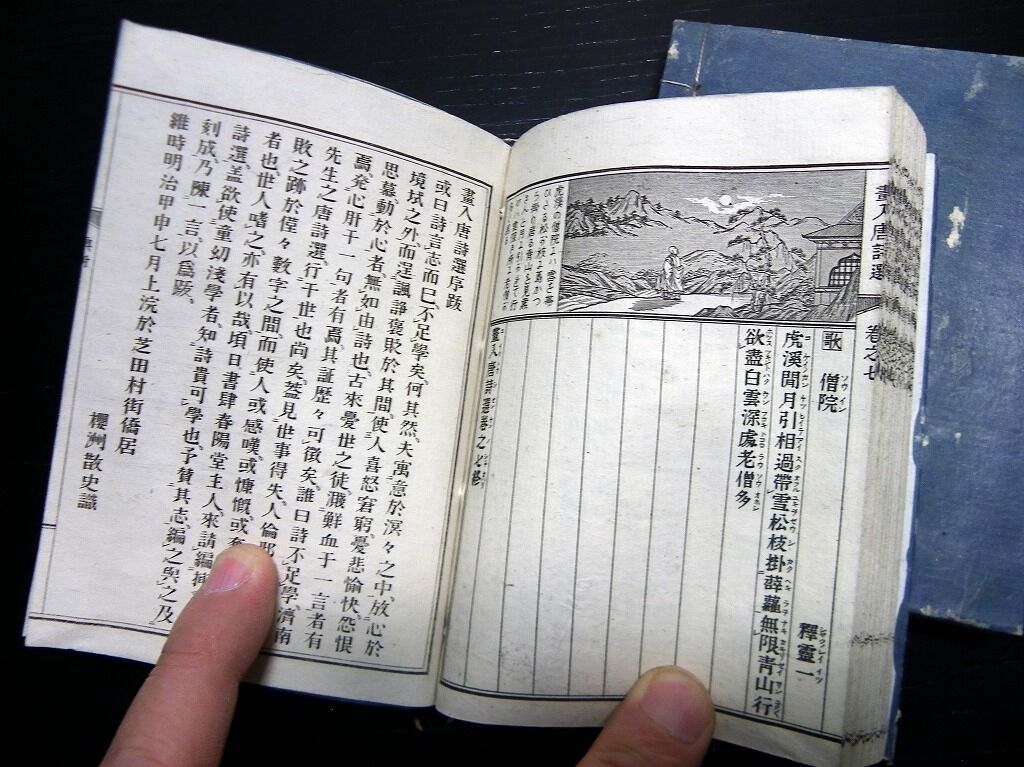 畫入唐詩選 卷之七
歌 僧院 釋靈一
虎溪閒月引相過帶雪松枝掛薜蘿無限青山行
欲盡白雲深處老僧多
虎溪の僧院にハ雪を帶
ひたる松の枝に蔦かつ
畫入唐詩選卷之七終
畫入唐詩選序跋
或曰詩言志而已、不足學矣、何其然、夫寓意於溟々之中、放心於
境栻之外、而逞諷諍褒敗於其間、使人喜怒窘窮、憂悲愉快、怨恨
思慕、動於心者、無如由詩也、古來憂世之徒、濺鮮血于一言者有
焉、発心肝干一句者有焉、其証歷々可徵矣、誰曰詩不足學、濟南
先生之唐詩選、行于世也尚矣、葢見世事得失、人倫邪
敗之跡於僅々數字之間、而使人或感嘆、或慷慨、或
者也、世人啫之、亦有以哉、頃日書肆春陽堂主人、來請編
詩選、葢欲使童幼淺學者、知詩貴可學也、予賛其志、編之與之、及
刻成、乃陳一言、以爲跋、
維時明治甲申七月上浣於芝田村街僑居
櫻洲散史識